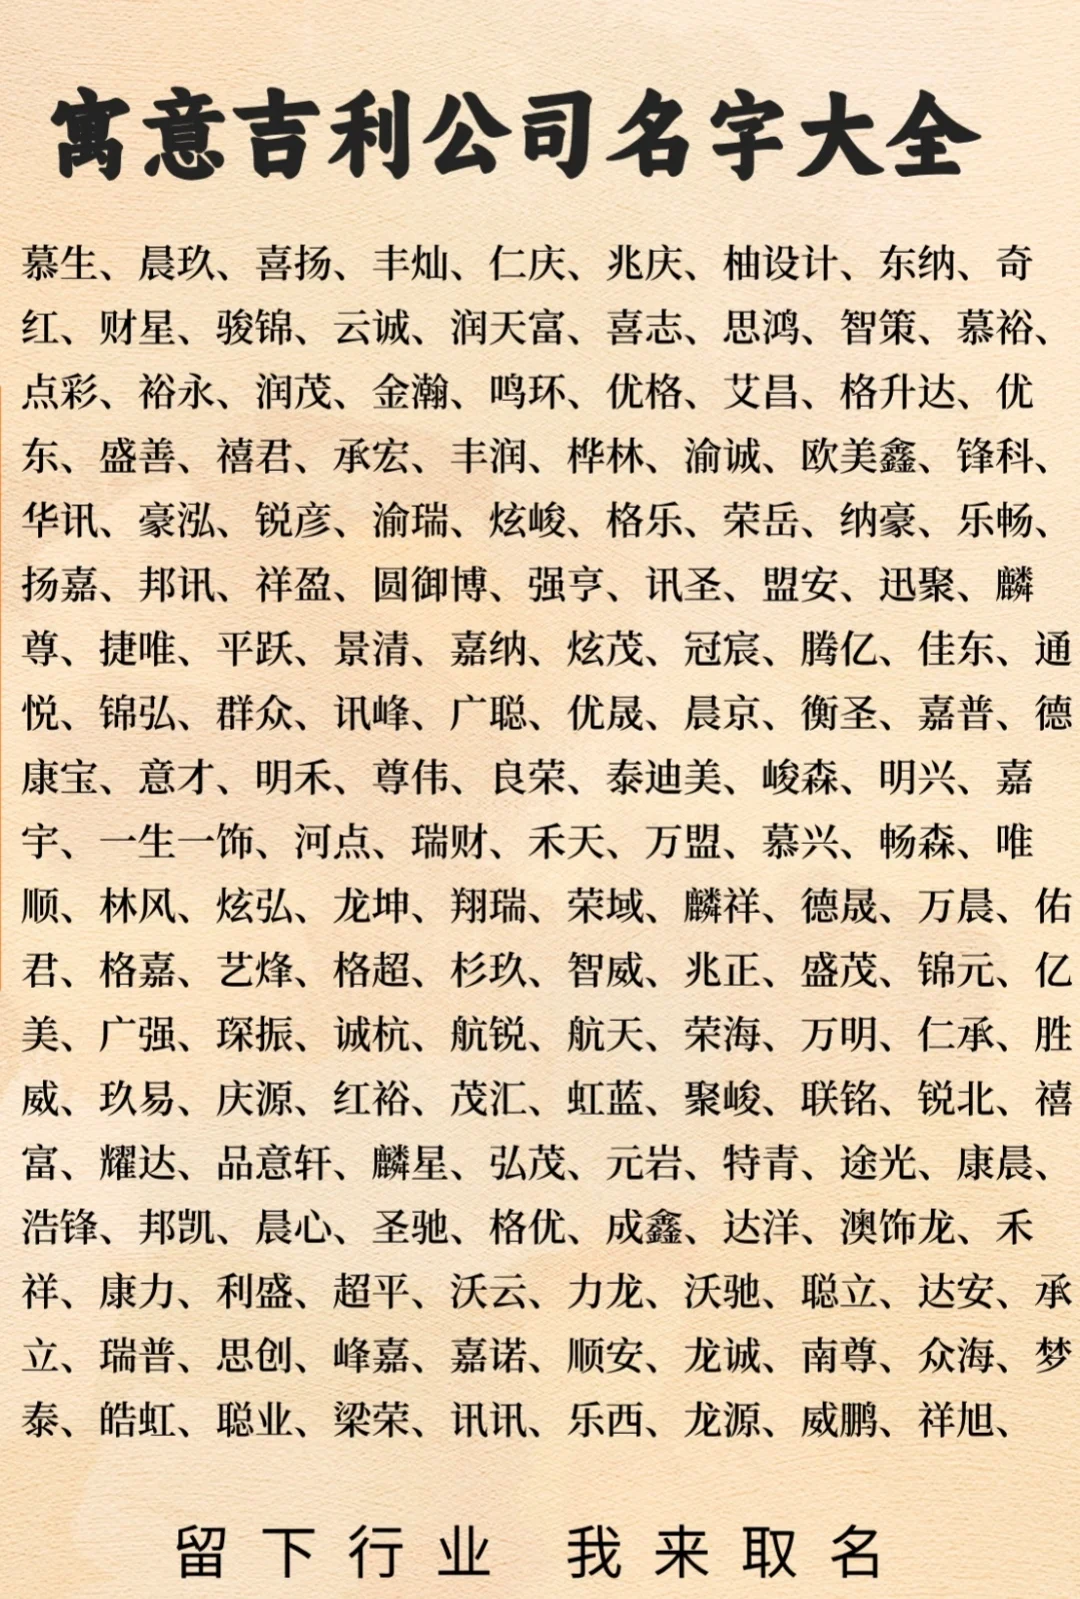 寓意吉利公司名字大全
慕生、晨玖、喜扬、丰灿、仁庆、兆庆、柚设计、东纳、奇
红、财星、骏锦、云诚、润天富、喜志、思鸿、智策、慕裕、
点彩、裕永、润茂、金瀚、鸣环、优格、艾昌、格升达、优
东、盛善、禧君、承宏、丰润、桦林、渝诚、欧美鑫、锋科、
华讯、豪泓、锐彦、渝瑞、炫峻、格乐、荣岳、纳豪、乐畅、
扬嘉、邦讯、祥盈、圆御博、强亨、讯圣、盟安、迅聚、麟
尊、捷唯、平跃、景清、嘉纳、炫茂、冠宸、腾亿、佳东、通
悦、锦弘、群众、讯峰、广聪、优晟、晨京、衡圣、嘉普、德
康宝、意才、明禾、尊伟、良荣、泰迪美、峻森、明兴、嘉
宇、一生一饰、河点、瑞财、禾天、万盟、慕兴、畅森、唯
顺、林风、炫弘、龙坤、翔瑞、荣域、麟祥、德晟、万晨、佑
君、格嘉、艺烽、格超、杉玖、智威、兆正、盛茂、锦元、亿
美、广强、琛振、诚杭、航锐、航天、荣海、万明、仁承、胜
威、玖易、庆源、红裕、茂汇、虹蓝、聚峻、联铭、锐北、禧
富、耀达、品意轩、麟星、弘茂、元岩、特青、途光、康晨、
浩锋、邦凯、晨心、圣驰、格优、成鑫、达洋、澳饰龙、禾
祥、康力、利盛、超平、沃云、力龙、沃驰、聪立、达安、承
立、瑞普、思创、峰嘉、嘉诺、顺安、龙诚、南尊、众海、梦
泰、皓虹、聪业、梁荣、讯讯、乐西、龙源、威鹏、祥旭、
留下行业 我来取名